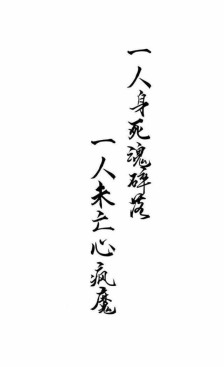 一人身死魂碎落
一人未亡心疯魔